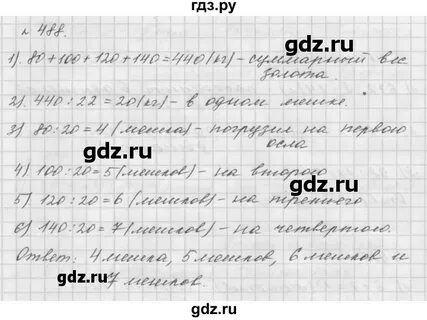 гдз.ру
№ 488.
1). 80+100+120+140=440(кг)-суммарный вес
золота.
2). 440:22=20(кг)-в одном мешке.
3) 80:20=4 (мешка)-погрузил на первого
осла
gdz.ru
4) 100:20=5(мешков)-на второго
5). 120:20=6 (мешков)-на третьего.
6) 140:20=7(мешков)-на четвертого.
Ответ: 4 мешка, 5 мешков, 6 мешков и
7 мешков.
gdz.ru